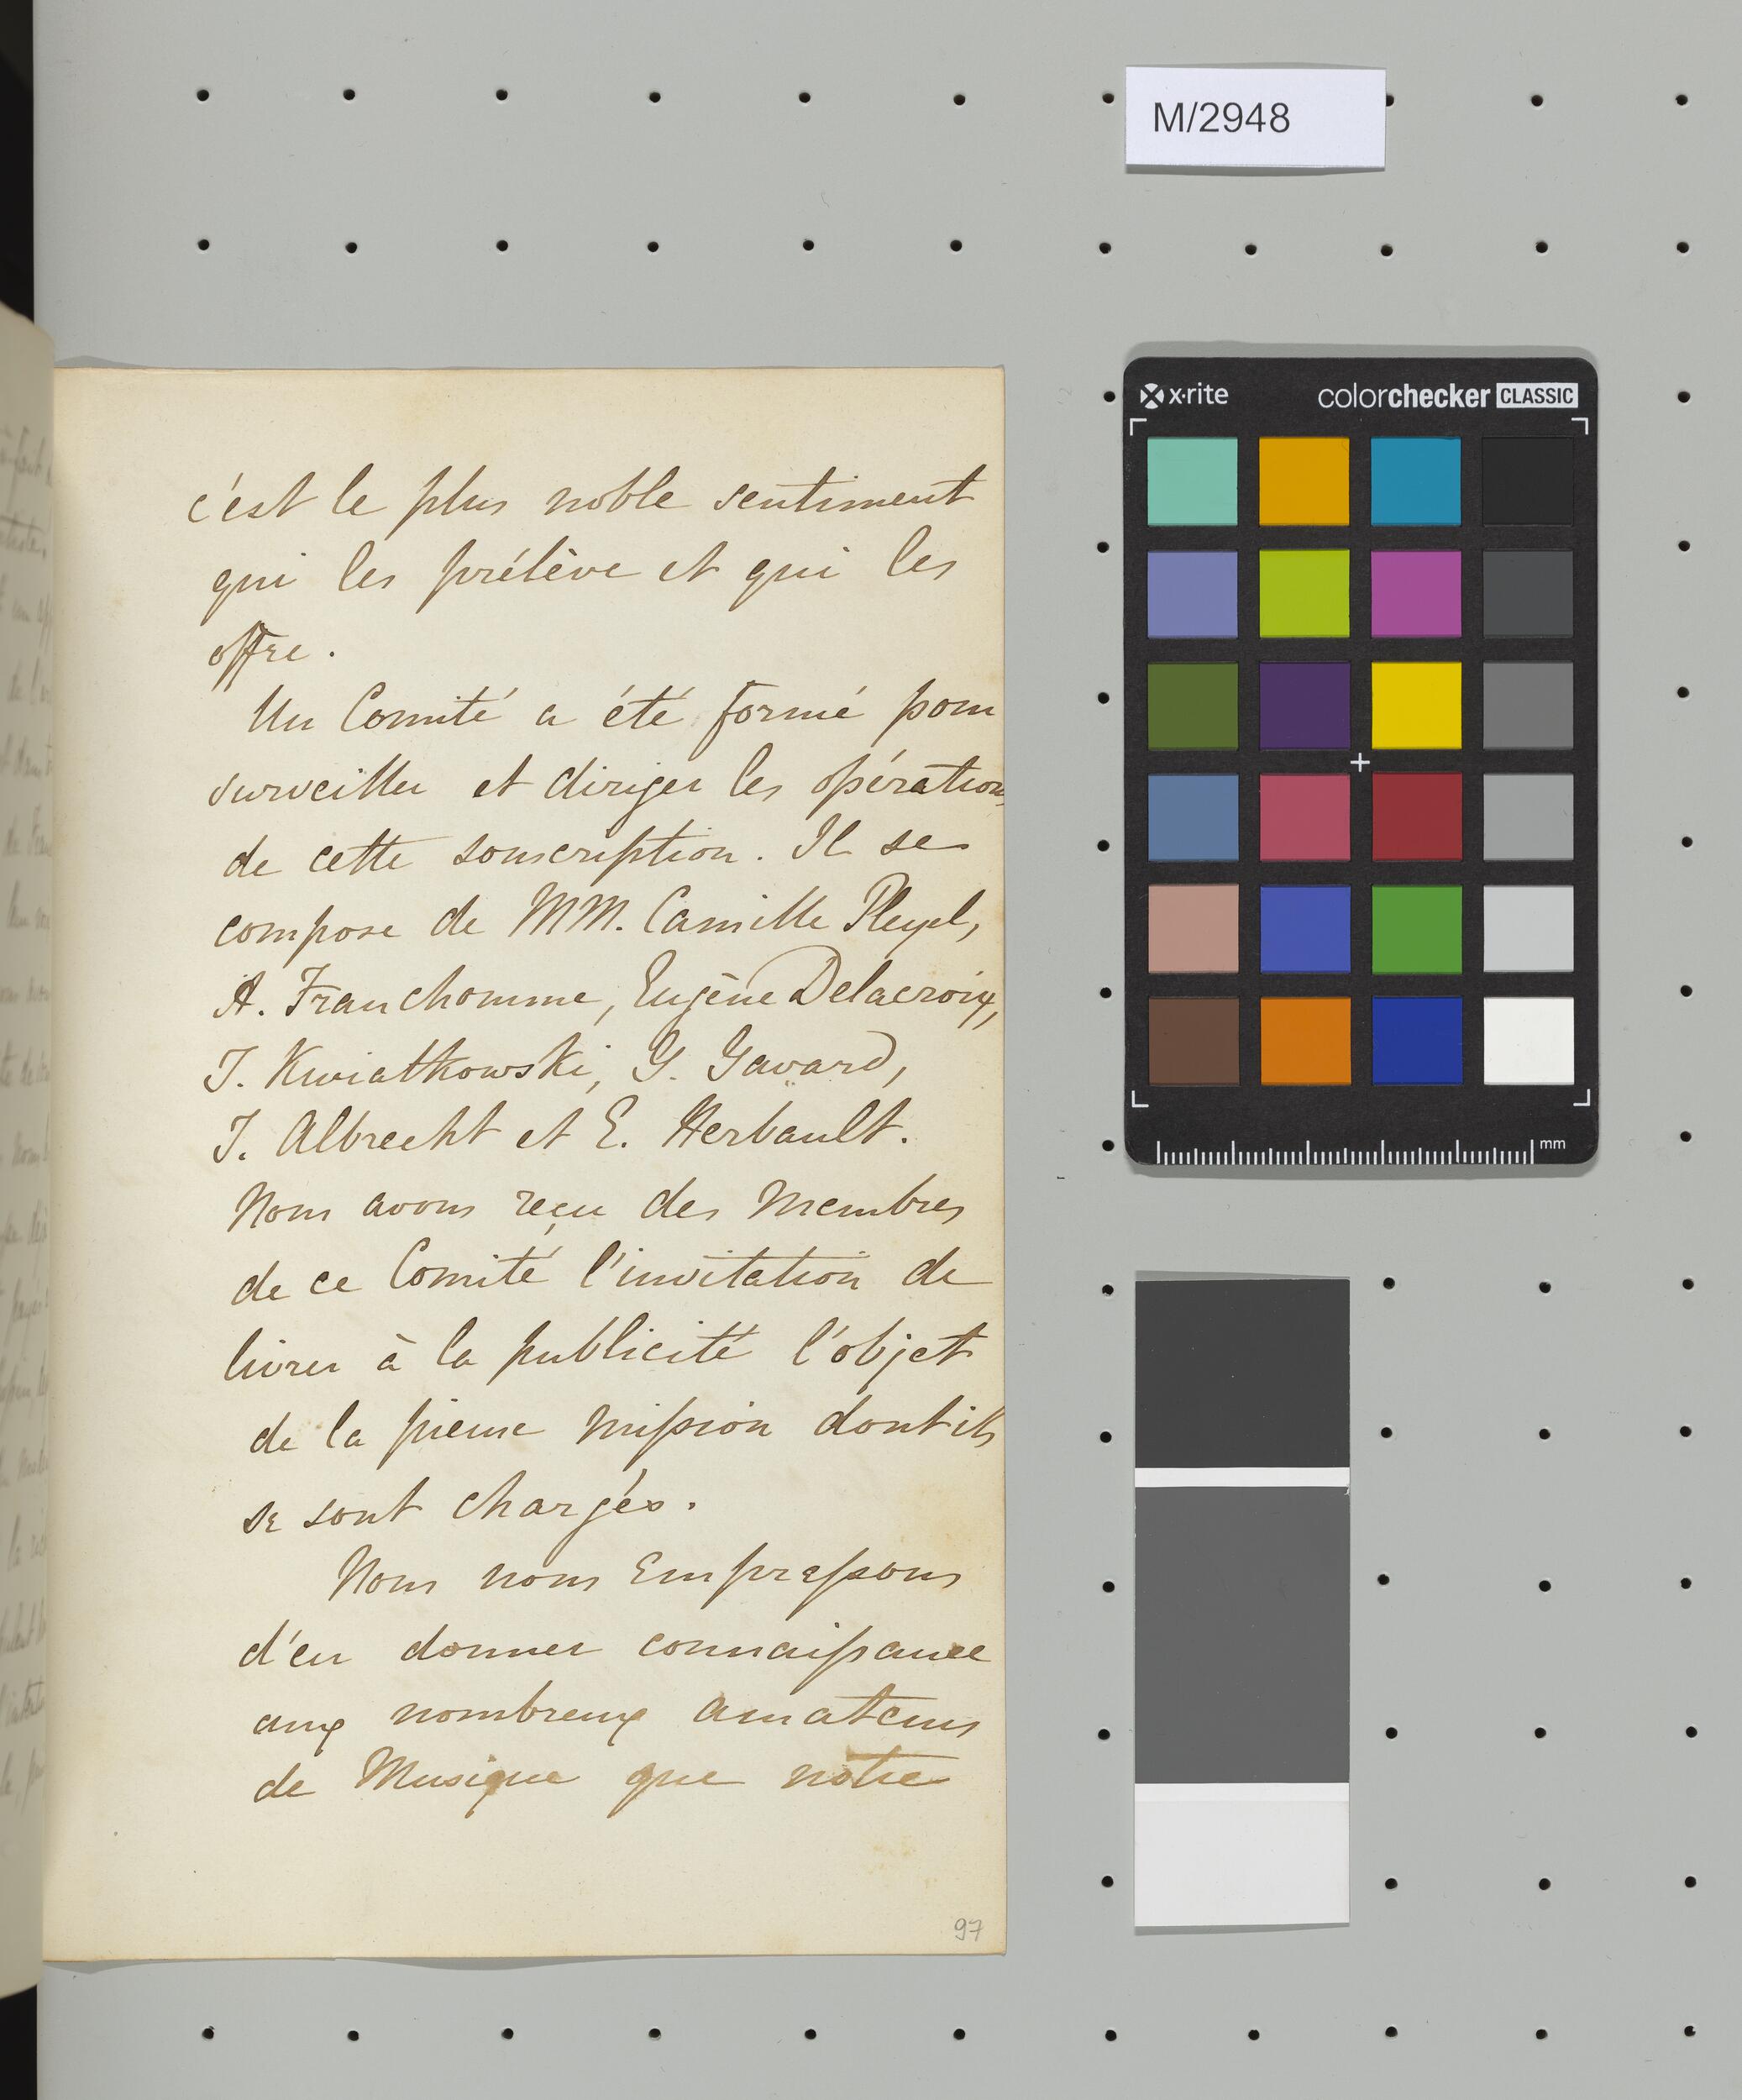 M/2948
x·rite colorchecker CLASSIC
c'est le plus noble sentiment
qui les prélève et qui les
offre.
Un Comité a été formé pour
surveiller et diriger les opérations
de cette souscription. Il se
compose de MM. Camille Pleyel,
A. Franchomme, Eugène Delacroix,
T. Kwiatkowski, G. Gavard,
T. Albrecht et E. Herbault.
Nous avons reçu des Membres
de ce Comité l'invitation de
livrer à la publicité l'objet
de la pieuse mission dont ils
se sont chargés.
Nous nous Empressons
d'en donner connaissance
aux nombreux amateurs
de Musique que notre
97
mm